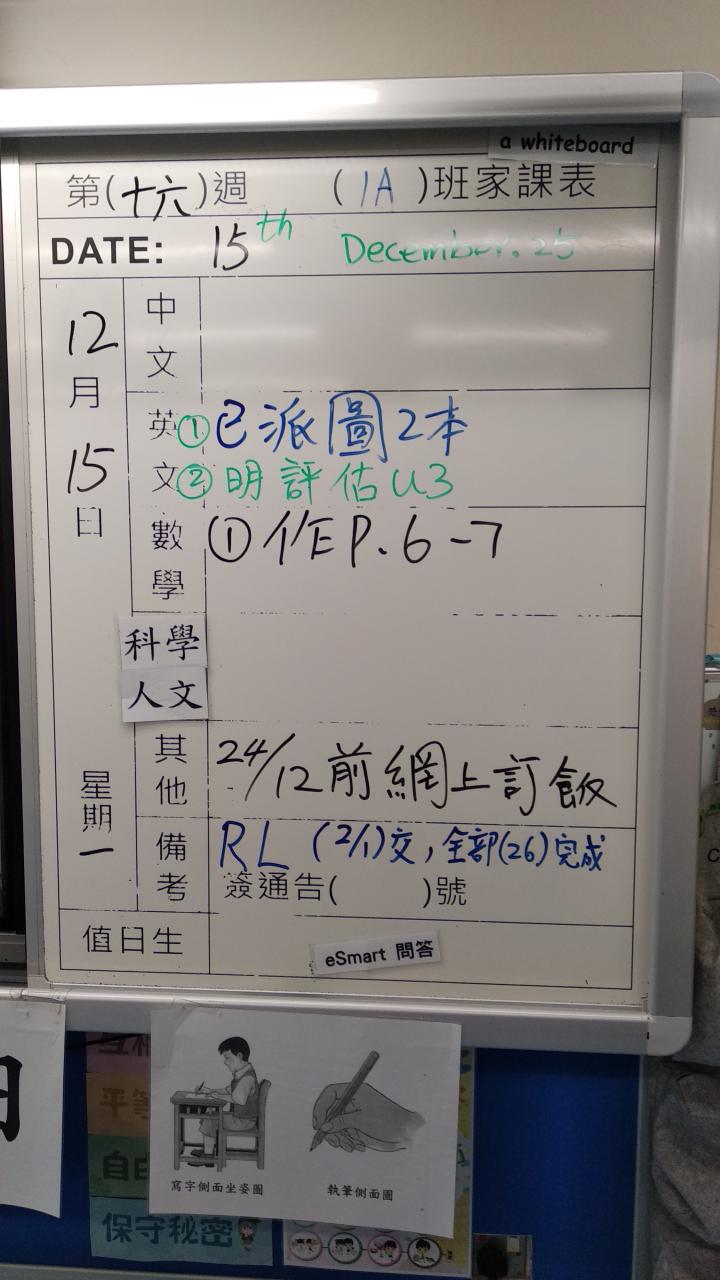 a whiteboard
第(十六)週 (1A)班家課表
DATE: 15th December. 25
12月15日 星期一
中文
英文 ①已派圖2本
②明評估U3
數學 ①作P.6-7
科學
人文
其他 24/12前網上訂飯
備考 RL (2/1)交，全部(26)完成
簽通告( )號
值日生
eSmart 問答
寫字側面坐姿圖 執筆側面圖
平等
自由
保守秘密